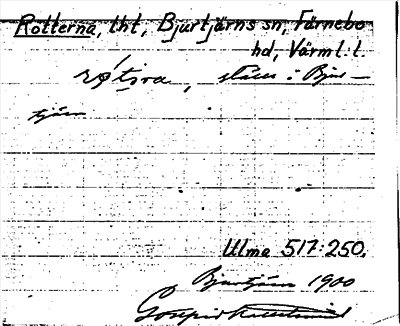 Rotterna, tht, Bjurtjärns sn, Färnebo
hd, Värml. l.
i Bjur-
tjärn
Ulma 517:250.
Bjurtjärn 1900